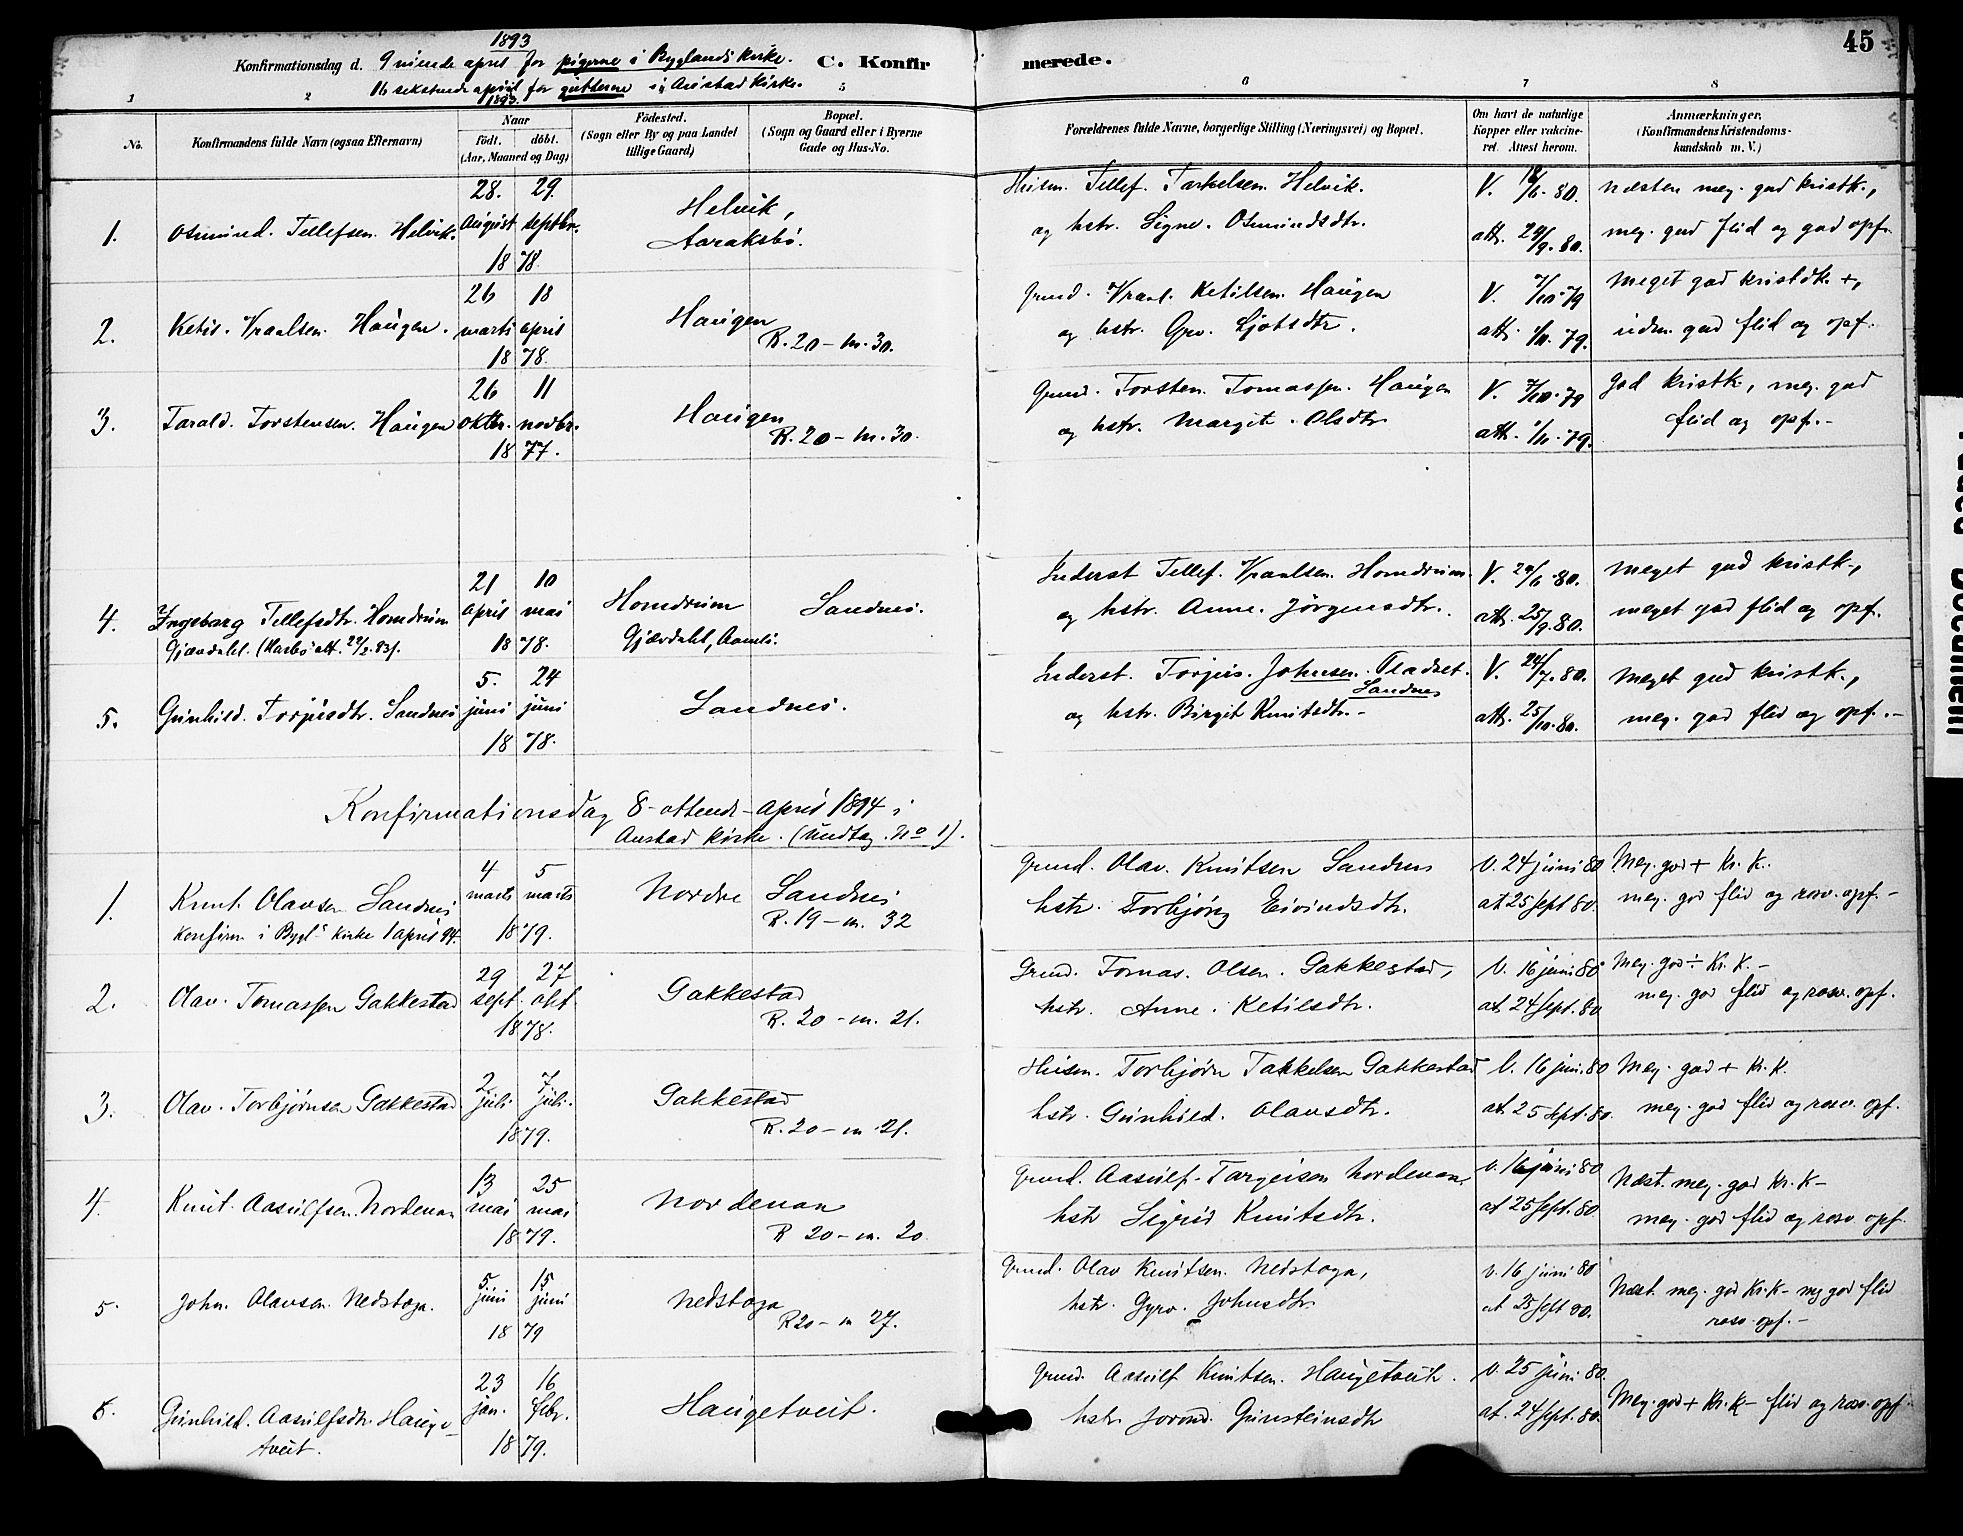 1893
Konfirmationsdag d. 9 niende april for pigerne i Byglands kirke. C. Konfirmerede. 45
16 sekstende april for gutterne i Austad kirke.
1893.
1 2 5 6 7 8
No. Konfirmandens fulde Navn (ogsaa Efternavn) Naar födt. döbt. (Aar, Maaned og Dag) Födested. (Sogn eller By og paa Landet tillige Gaard) Bopæl. (Sogn og Gaard eller i Byerne Gade og Hus-No. Forældrenes fulde Navne, borgerlige Stilling (Næringsvei) og Bopæl. Om havt de naturlige Kopper eller vakcineret. Attest herom. Anmærkninger. (Konfirmandens Kristendomskundskab m. V.)
28. 29. Helvik, Husm. Tellef. Tarkelsen. Helvik. V. 18/6. 80. næsten meg. god kristk.,
1. Osmund. Tellefsen. Helvik. august septbr. Aaraksbø. og hstr. Signe. Osmundsdtr. att. 29/9. 80. meg. god flid og god opf.
18 78.
26 18 Haugen Grund. Vraal. Ketilsen. Haugen V. 7/10. 79 Meget god kristdk. +,
2. Ketil. Vraalsen. Haugen. marts april R. 20 - m. 30. og hstr. Gro. Ljotsdtr. att. 1/11. 79. udm. god flid og opf.
18 78.
26 11 Haugen Grund. Torsten. Tomassen. Haugen V. 7/10. 79 God kristk., meg. god
3. Tarald. Torstensen. Haugen oktbr. novbr. R. 20 - m. 30. og hstr. Margit. Olsdtr. att. 1/11. 79. flid og opf. -
18 77.
21 10 Homdrum Sandnes. Inderst Tellef. Vraalsen. Homdrum. V. 29/6. 80. meget god kristk.,
4. Ingeborg Tellefsdtr. Homdrum april mai Gjøvdahl, Aamli. og hstr. Anne. Jörgensdtr. att. 25/9. 80. meget god flid og opf.
Gjøvdahl. 18 78.
5. 24 Sandnes. Inderst. Torjus. Johnsen. Pladset. V. 24/7. 80. Meget god kristk.,
Sandnes
5. Gunhild. Torjusdtr. Sandnes juni juni og hstr. Birgit Knutsdtr. - att. 25/10. 80. meg. god flid og opf. -
18 78.
Konfirmationsdag 8 - ottende - april 1894 i
Austad kirke. (undtag. No 1).
4 5 Nordre Sandnes Grund. Olav. Knutsen Sandnes V. 24 juni 80 Meg. god + Kr. K.
1. Knut. Olavsen Sandnes marts marts R. 19 - m. 32 hstr. Torbjörg Eivindsdtr. at 25 sept 80. meg. god flid og rosv. opf. -
Konfirm i Bygl.s kirke 1 april 94. 1879.
29 27 Gakkestad Grund. Tomas. Olsen. Gakkestad, V. 16 juni 80 Meg. god ÷ Kr. K. -
2. Olav. Tomassen Gakkestad sept. okt R. 20 - m. 21. hstr. Anne. Ketilsdtr. at 24 sept. 80 meg. god flid og rosv. opf.
1878.
2 7 Gakkestad Husm. Torbjörn Takkelsen Gakkestad V. 16 juni. 80 Meg. god + Kr. K.
3. Olav. Torbjörnsen Gakkestad juli juli. R. 20 - m 21. hstr. Gunhild. Olavsdtr. at 25 sept. 80. meg. god flid og rosv. opf.
1879.
13 25 Nordenaa Grund. Aasulf. Targeisen Nordenaa. V. 16 juni 80 Næst. meg. god Kr. K -
4. Knut. Aasulfsen. Nordenaa mai mai R 20 - m. 20. hstr Sigrid Knutsdtr. at 25 sept. 80. meg. god flid og rosv. opf.
1879.
5. 15 Nedstoga Grund. Olav Knutsen. Nedstoga, V. 16 juni 80 Næst. meg. god Kr. K - mg god flid
5. John. Olavsen. Nedstoga. juni juni R 20 - m 27. hstr. Gyro. Johnsdtr. at 25 sept 80. rosv. opf. -
18 79
23 16 Haugetveit. Grund. Aasulf Knutsen. Haugetveit. V. 25 juni 80. Meg. god + Kr. K - flid og rosv. opf.
6. Gunhild. Aasulfsdtr. Haugetveit. jan. febr. hstr. Jorond. Gunsteinsdtr at. 24 sept. 80.
18 79.